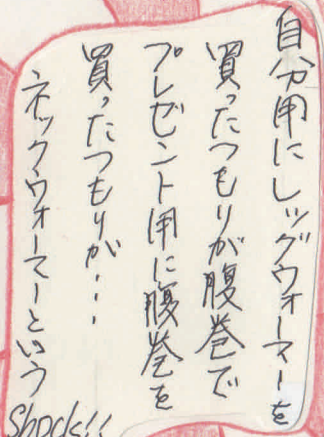 自分用にレッグウォーマーを
買ったつもりが腹巻で
プレゼント用に腹巻を
買ったつもりが・・・
ネックウォーマーという
Shock!!